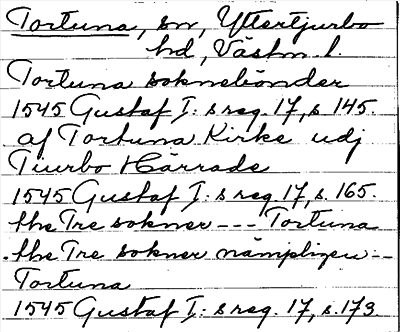 Tortuna, sn, Yttertjurbo
hd, Västm. l.
Tortuna soknebönder
1545 Gustaf I: s reg. 17, s 145.
af Tortuna Kirke udj
Tiurbo Härrade
1545 Gustaf I: s reg. 17, s. 165.
the Tre sokner --- Tortuna
the Tre sokner nämpligen --
Tortuna
1545 Gustaf I: s reg. 17, s. 173.